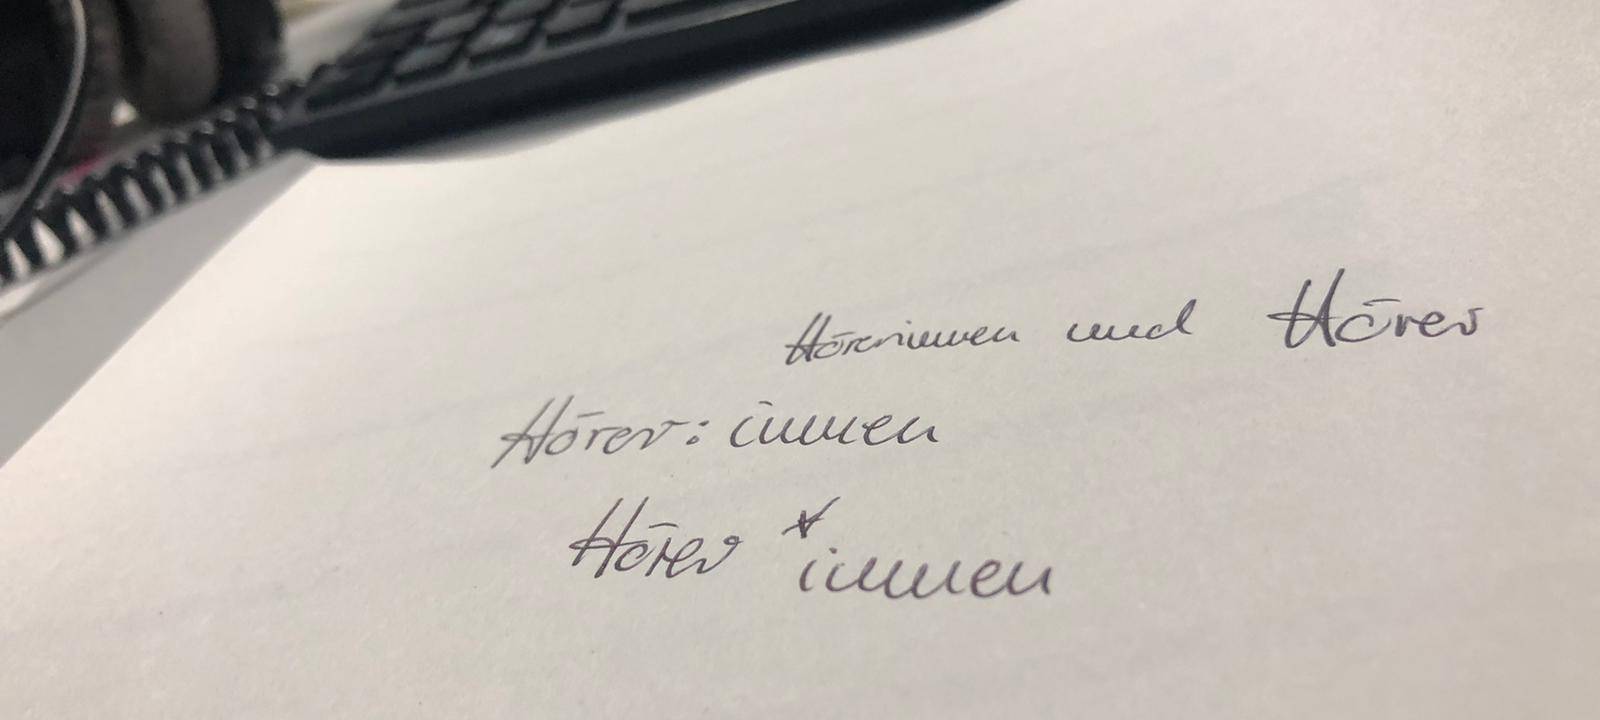 Hörerinnen und Hörer
Hörer:innen
Hörer*innen